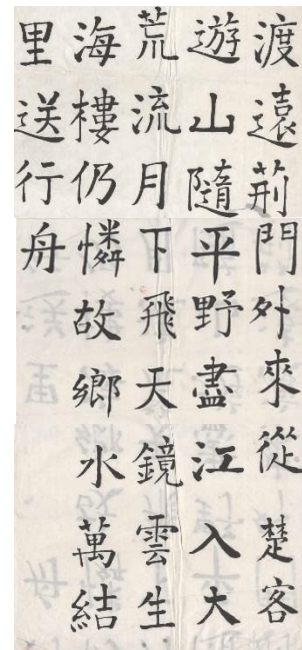 渡遠荊門外來從楚客
遊山隨平野盡江入大
荒流月下飛天鏡雲生
海樓仍憐故鄉水萬結
里送行舟